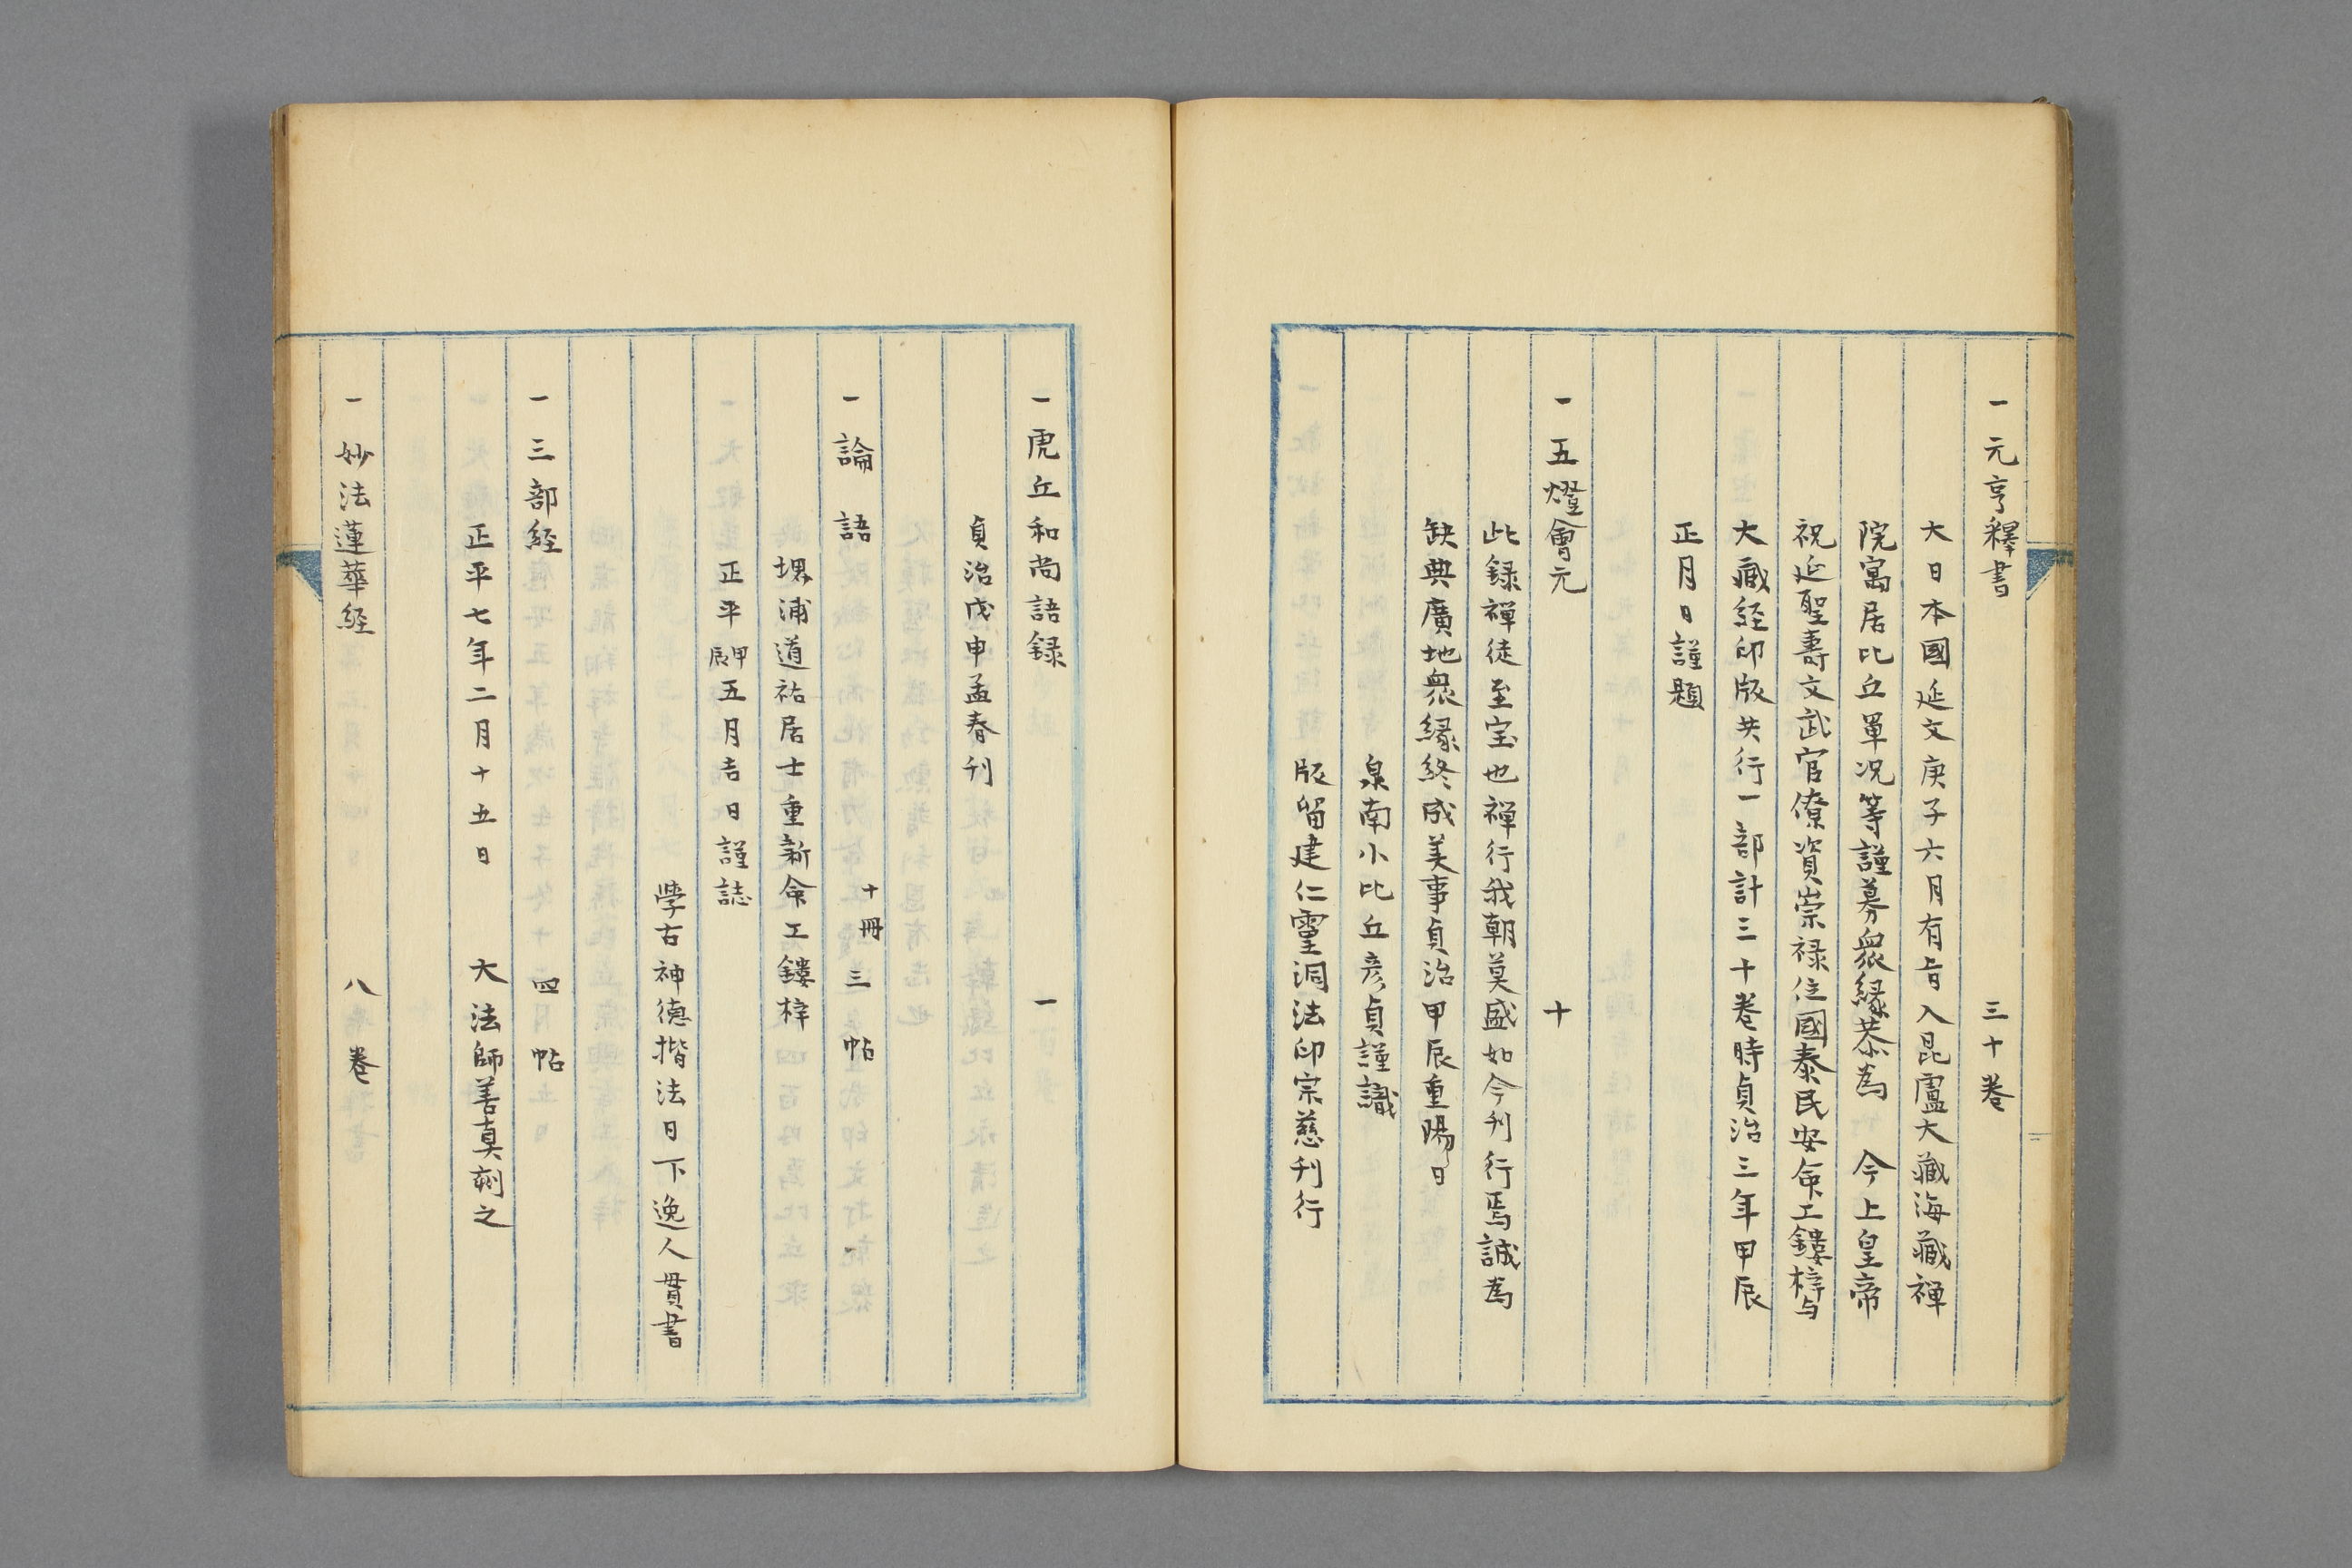 一元亨釋書 三十巻
大日本國延文庚子六月有旨入昆盧大藏海藏禅
院寓居比丘單况等謹募衆縁恭為 今上皇帝
祝延聖壽文武官僚資崇禄位國泰民安命工鏤梓与
大藏経印版共行一部計三十巻時貞治三年甲辰
正月日謹題
一五燈會元 十
此録禅徒至宝也禅行我朝莫盛如今刊行焉誠為
缺典廣地衆縁終成美事貞治甲辰重陽日
泉南小比丘彦貞謹識
版留建仁靈洞法印宗慈刊行
一虎丘和尚語録 一
貞治戊申孟春刊
一論語 十冊 三帖
堺浦道祐居士重新命工鏤梓
正平甲辰五月吉日謹誌
學古神德揩法日下逸人貫書
一三部経 四帖
正平七年二月十五日 大法師善真刻之
一妙法蓮華経 八巻